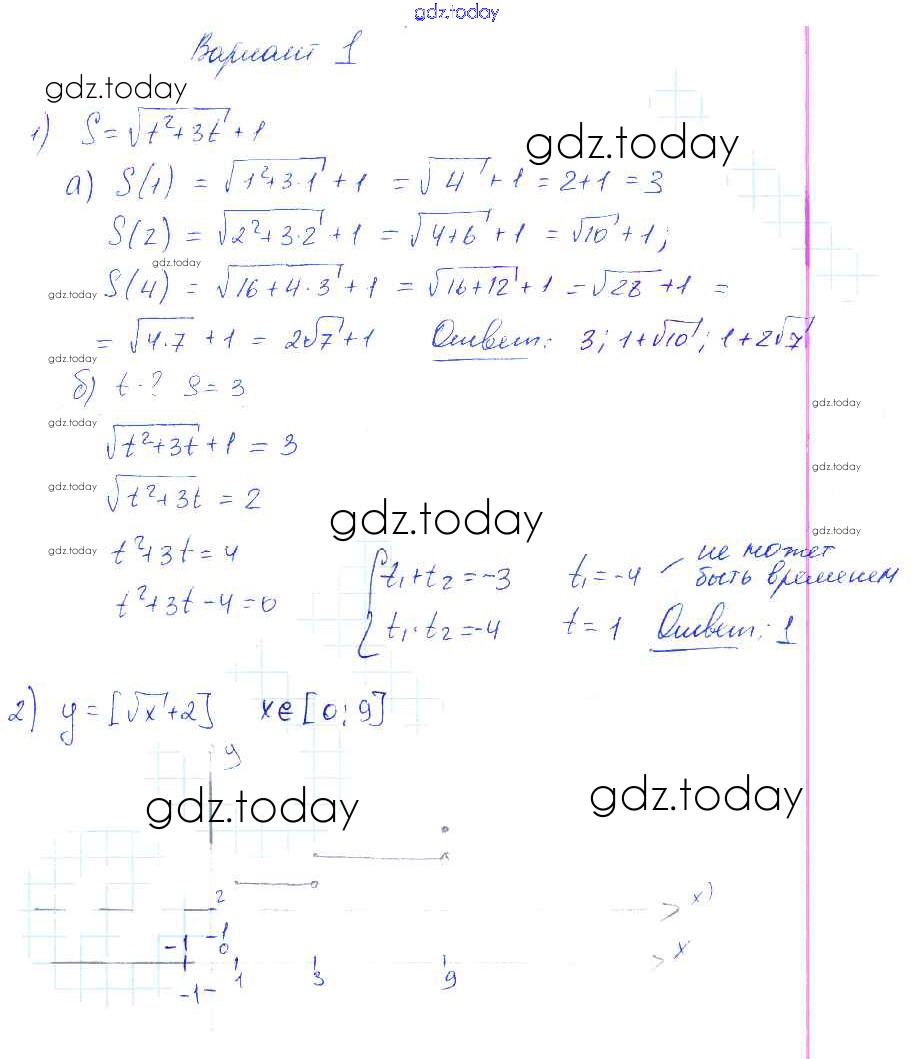 gdz.today
Вариант 1
gdz.today
1) S = √(t²+3t) + 1
gdz.today
а) S(1) = √(1²+3·1) + 1 = √4 + 1 = 2+1 = 3
S(2) = √(2²+3·2) + 1 = √(4+6) + 1 = √10 + 1;
gdz.today
S(4) = √(16+4·3) + 1 = √(16+12) + 1 = √28 + 1 =
gdz.today
= √(4·7) + 1 = 2√7 + 1 Ответ: 3; 1+√10; 1+2√7
gdz.today
б) t-? S = 3
gdz.today
gdz.today
√(t²+3t) + 1 = 3
gdz.today
√(t²+3t) = 2
gdz.today
gdz.today
gdz.today
t²+3t = 4
gdz.today
{ t₁+t₂ = -3 t₁ = -4 не может быть временем
t²+3t-4 = 0
t₁·t₂ = -4 t = 1 Ответ: 1
2) y = [√x+2] x ∈ [0; 9]
y
gdz.today
gdz.today
2
x)
-1
-1
0
x
-1
1
3
9